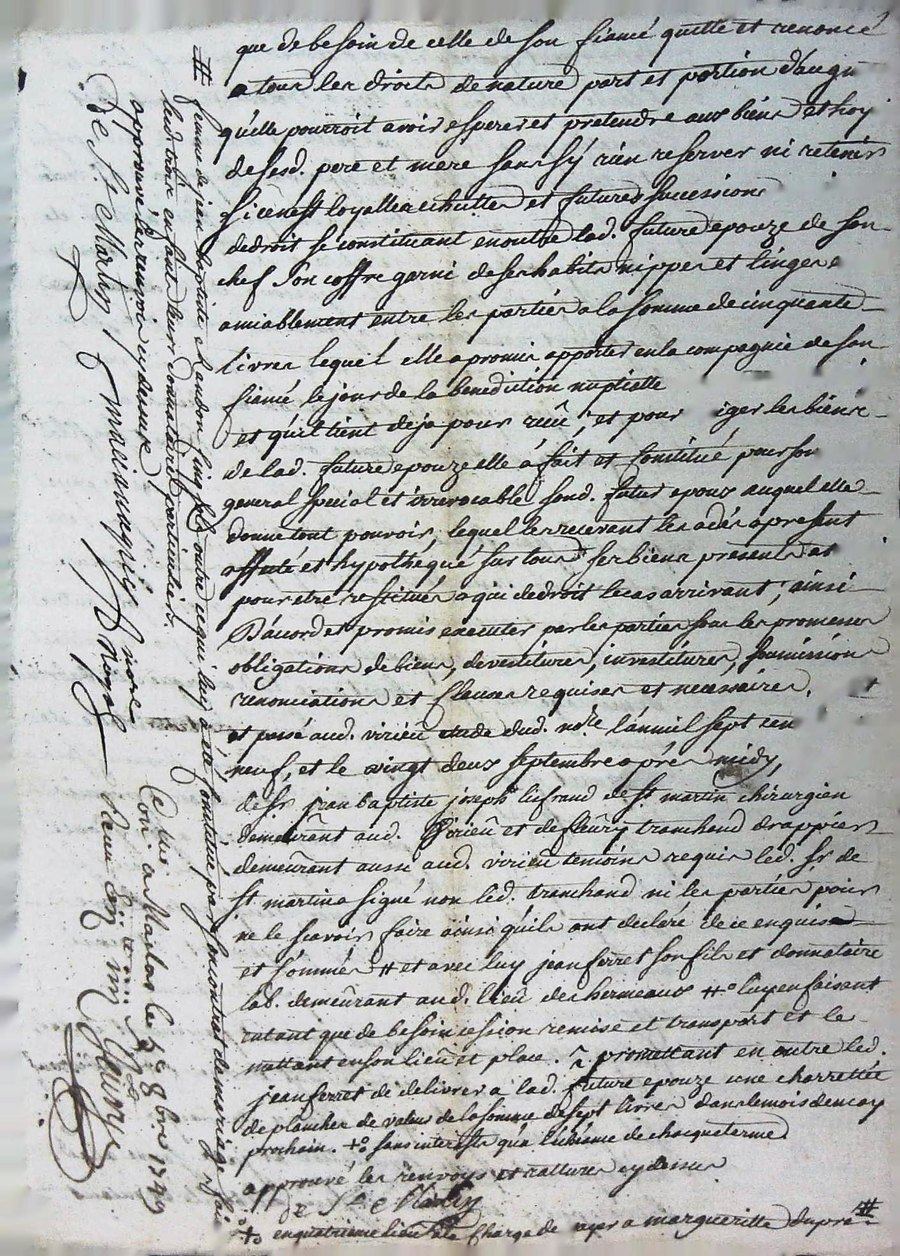 que de besoin de celle de son fiancé quitte et renoncé
a tous les droits de nature part et portion d'augn
qu'elle pourroit avoir esperer et pretendre aux biens et hoy
desesd. pere et mere sans sÿ rien reserver ni retenir
si cenest loyalles echuttes et futures sucessions
de droit se constituant en outre lad. future epouze de son
chef son coffre garni de ses habits nippes et linges
amiablement entre les parties a la somme de cinquante
livres lequel elle a promis apporter en la compagnie de son
fiancé le jour de la benediction nuptielle
et qu'il tient deja pour reçû, et pour iger les biens
de lad. future epouze elle á fait et constitué pour son
general special et irrevocable sond. futur epoux auquel elle
donne tout pouvoir, lequel les recevant les a dés a present
affecté et hypothéqué sur tous ses biens presents et
pour etre restitués a qui de droit le cas arrivant, ainsi
D'acord et promis executer par les parties sous les promesses
obligations de biens, devestitures, investitures, soumissions
renonciations et clauses requises et necessaires,
et passé aud. virieû etude dud. nore l'an mil sept cen
neuf, et le vingt deux septembre aprés midy,
de sr. jean baptiste joseph lefrand de st martin chirurgien
demeûrant aud. Virieû et de fleûry tranchand drappier
demeûrant aussi aud. virieû temoins requis led. sr. de
st. martin a signé non led. tranchand ni les parties pour
ne le scavoir faire ainsi qu'ils ont declaré de ce enquis
et sommés # et avec luy jean ferret son fils et donnataire
lab. demeûrant aud. lieu des hermeaux #o luy en faisant
autant que de besoin cession remise et transport et le
mettant en son lieu et place. promettant en outre led.
jean ferret de delivrer à lad. future epouze une charrettée
de plancher de valeur de la somme de sept livres dans le mois de may
prochain. +o sans interests qu'a l'échéance de chacque terme
approuvé les renvoys et rattures cy dessus
De St. Martin
+o en quatrieme lieu a la charge de payer a margueritte dupré #
# femme de jean baptiste chaudon cinq outre ce qui luy a été constitué par son contrat de mariage
led. trois enfants leurs donnataires particuliers
approuvé le renvoy cy dessus
De St. Martin
nore Royal
Con. a le 5e 8bre 1749